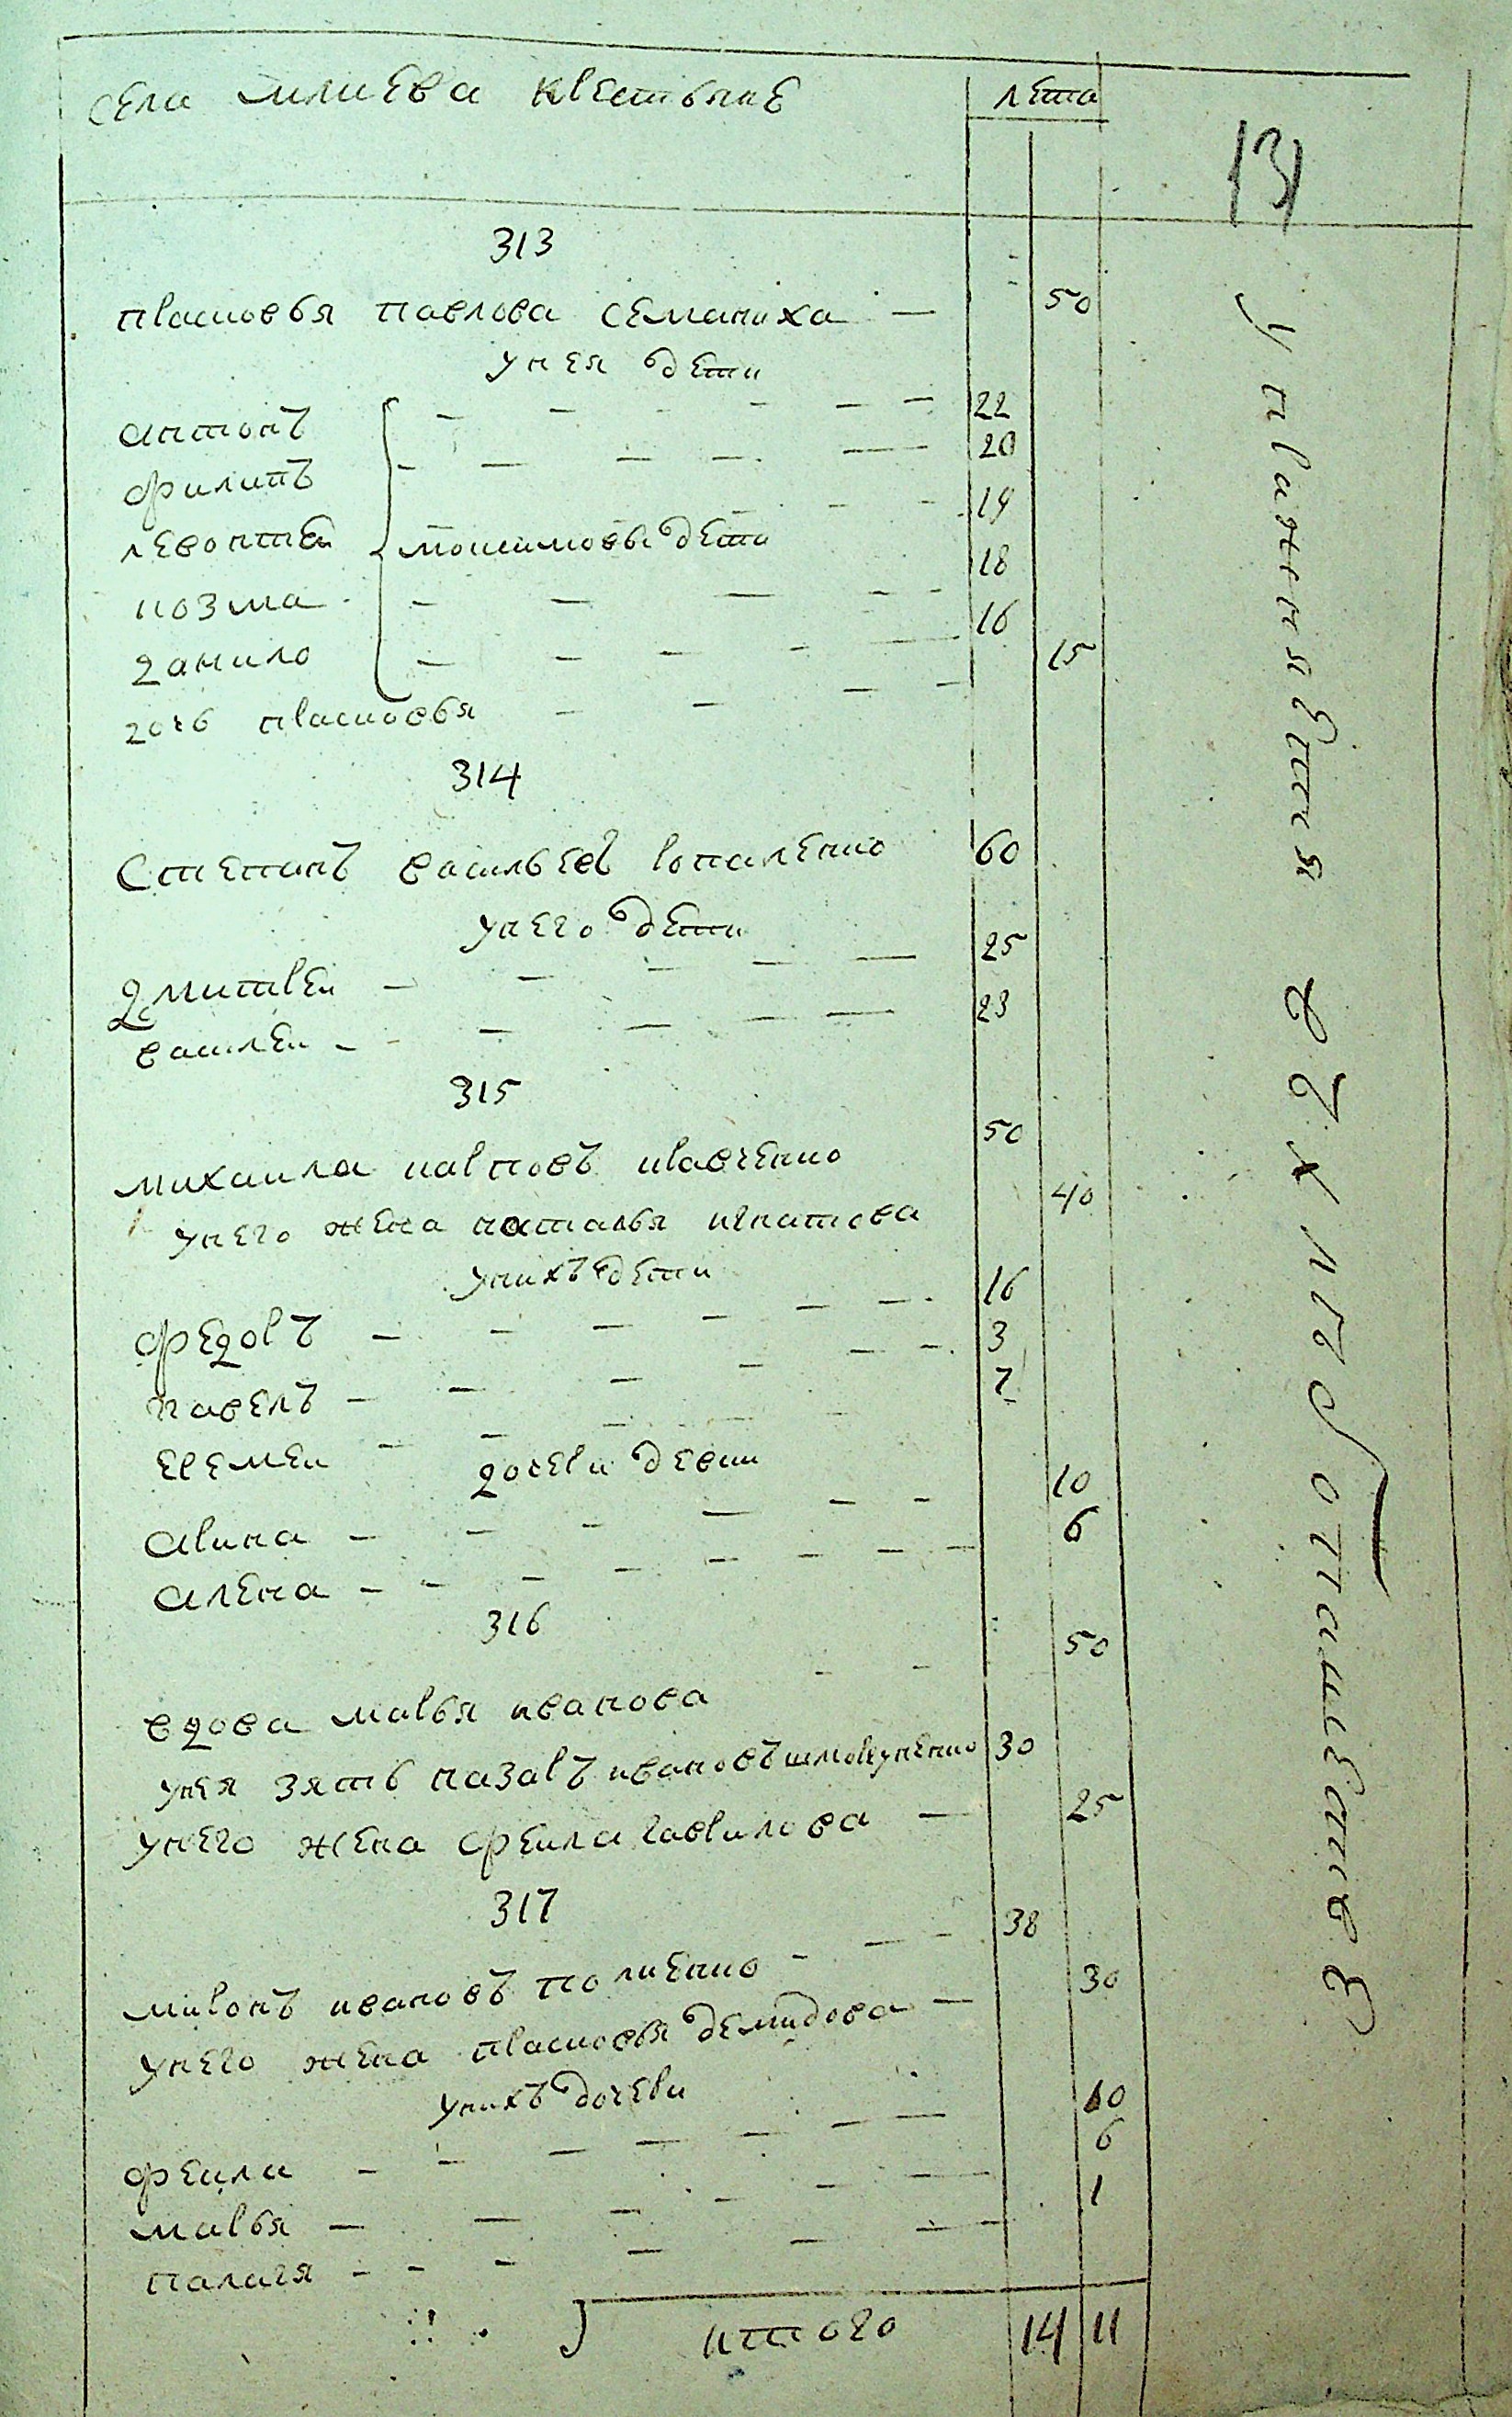 села млиева крестьяне лета
131
313
прасковья павлова семаниха — 50
у нея дети
антонъ 22
филипъ 20
левонтеи 19
максимовы дети
козма 18
данило 16
дочь прасковья 15
314
Степанъ васильевъ копаленко 60
у него дети
дмитреи 25
василеи 23
315
михаила карповъ кравченко 50
у него жена наталья игнатова 40
у нихъ дети
федоръ 16
павелъ 3
еремеи 7
дочери девки
арина 10
алена 6
316
вдова марья иванова 50
у нея зять назаръ ивановъ 30
у него жена фекла гаврилова — 25
317
миронъ ивановъ полиенко 38
у него жена прасковья демидова — 30
у нихъ дочери
фекла 10
марья 6
палагя 1
итого 14 11